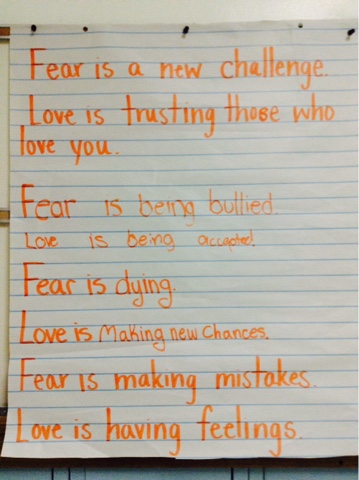 Fear is a new challenge.
Love is trusting those who
love you.
Fear is being bullied.
Love is being accepted.
Fear is dying.
Love is Making new Chances.
Fear is making mistakes.
Love is having feelings.